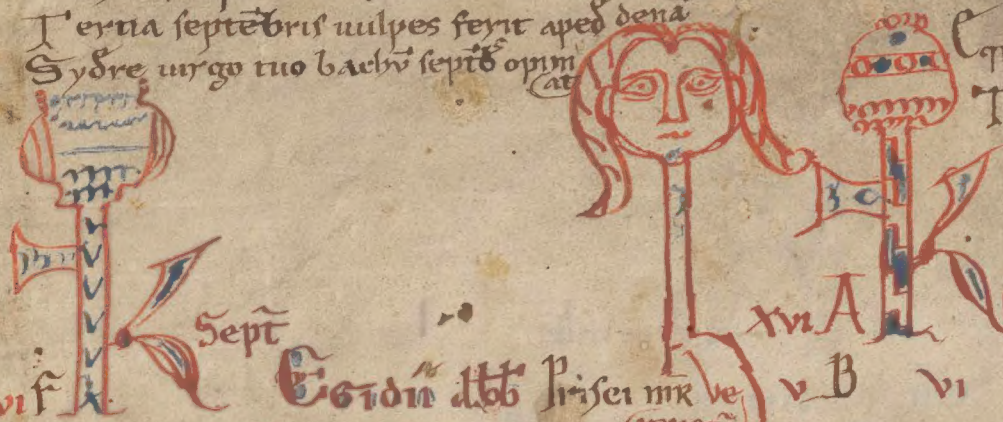 Tertia septēbris uulpes ferit aped dena
Sydre uirgo tuo bachū septēb opim
cat
K Septͭ
xvi A K
vi f Egidii abb Prisci mr̄ ve v B vi